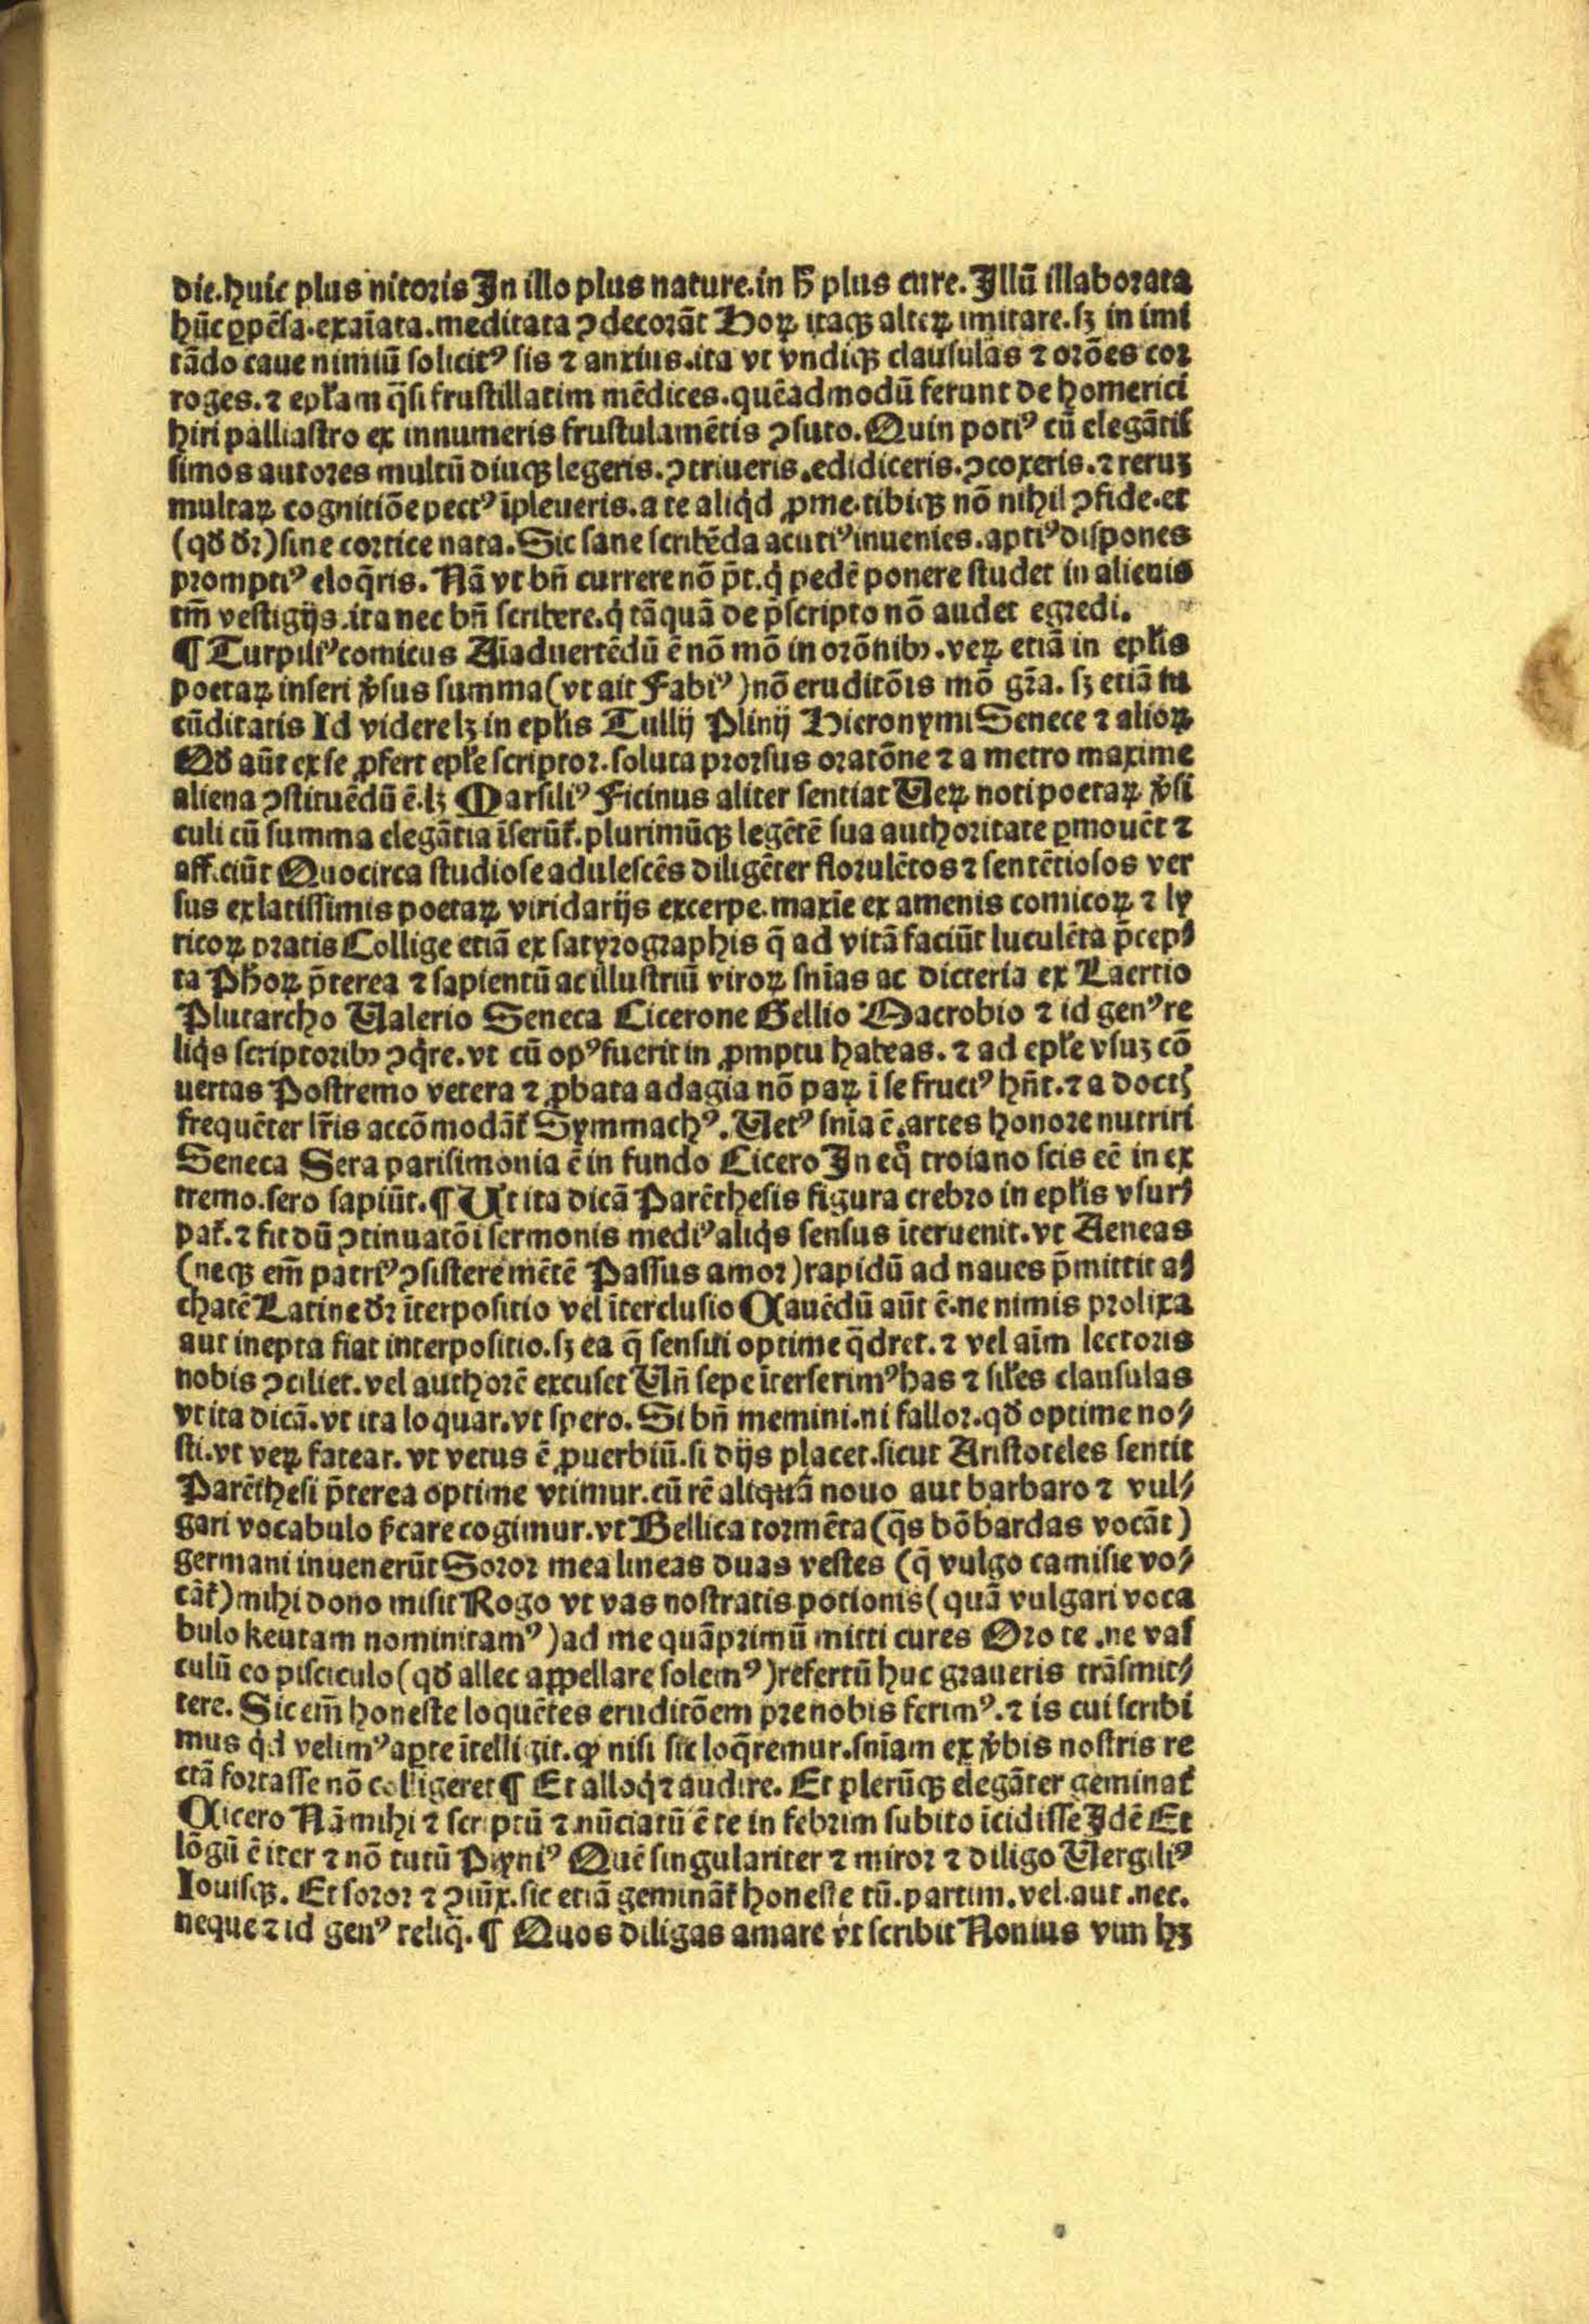 die.huic plus nitoris In illo plus nature.in h̄ plus cure. Illū illaborata
hūc ꝑpēsa.exaīata.meditata ꝯdecorāt Hoꝝ itaqꝫ alteꝝ imitare.sꝫ in imi
tādo caue nimiū solicitꝰ sis ⁊ anxius.ita vt vndiqꝫ clausulas ⁊ orōes cor
roges.⁊ epl̄am q̄si frustillatim mēdices.quēadmodū ferunt de homerici
hiri palliastro ex innumeris frustulamētis ꝯsuto.Quin potiꝰ cū elegātis
simos autores multū diuqꝫ legeris.ꝯtriueris.edidiceris.ꝯcoxeris.⁊ reruꝫ
multaꝝ cognitiōe pectꝰ īpleueris.a te aliqd ꝓme.tibiqꝫ nō nihil ꝯfide.et
(qđ dr̄)sine cortice nata.Sic sane scribēda acutiꝰ inuenies.aptiꝰ dispones
promptiꝰ eloq̄ris. Nā vt bn̄ currere nō p̄t.q̇ pedē ponere studet in alienis
tm̄ vestigijs.ita nec bn̄ scribere.q̇ tāquā de p̄scripto nō audet egredi.
¶ Turpiliꝰ comicus Aīaduertēdū ē nō mō in orōnibꝰ.veꝝ etiā in epl̄is
poetaꝝ inseri v̓sus summa(vt ait Fabiꝰ)nō eruditōis mō gr̄a. sꝫ etiā iu
cūditatis Id videre lꝫ in epl̄is Tullij Plinij Hieronymi Senece ⁊ alioꝝ
Qđ aūt ex se ꝓfert epl̄e scriptor.soluta prorsus oratōne ⁊ a metro maxime
aliena ꝯstituēdū ē.lꝫ Marsiliꝰ Ficinus aliter sentiat Veꝝ noti poetaꝝ v̓si
culi cū summa elegātia īserūt᷑.plurimūqꝫ legētē sua authoritate ꝑmouēt ⁊
afficiūt Quocirca studiose adulescēs diligēter florulētos ⁊ sentētiosos ver
sus ex latissimis poetaꝝ viridarijs excerpe.maxīe ex amenis comicoꝝ ⁊ ly
ricoꝝ pratis Collige etiā ex satyrographis q̄ ad vitā faciūt luculēta p̄cep⸗
ta Phoꝝ p̄terea ⁊ sapientū ac illustriū viroꝝ sn̄ias ac dicteria ex Laertio
Plutarcho Valerio Seneca Cicerone Gellio Macrobio ⁊ id genꝰ re
liq̇s scriptoribꝰ ꝯq̇re.vt cū opꝰ fuerit in ꝓmptu habeas.⁊ ad epl̄e vsuꝫ cō
uertas Postremo vetera ⁊ ꝓbata adagia nō paꝝ ī se fructꝰ hn̄t.⁊ a doctꝭ
frequēter lr̄is accōmodāt᷑ Symmachꝰ. Vetꝰ sn̄ia ē.artes honore nutriri
Seneca Sera parisimonia ē in fundo Cicero In eq̊ troiano scis eē in ex
tremo.sero sapiūt.¶ Ut ita dicā Parēthesis figura crebro in epl̄is vsur⸗
pat᷑.⁊ fit dū ꝯtinuatōi sermonis mediꝰ aliq̇s sensus īteruenit.vt Aeneas
(neqꝫ em̄ patriꝰ ꝯsistere mētē Passus amor)rapidū ad naues p̄mittit a⸗
chatē Latine dr̄ īterpositio vel īterclusio Cauēdū aūt ē.ne nimis prolixa
aut inepta fiat interpositio.sꝫ ea q̄ sensui optime q̄dret.⁊ vel aīm lectoris
nobis ꝯciliet.vel authorē excuset Vn̄ sepe īterserimꝰ has ⁊ sil̄es clausulas
vt ita dicā.vt ita loquar.vt spero. Si bn̄ memini.ni fallor.qđ optime no⸗
sti.vt veꝝ fatear.vt vetus ē ꝓuerbiū.si dijs placet.sicut Aristoteles sentit
Parēthesi p̄terea optime vtimur.cū rē aliquā nouo aut barbaro ⁊ vul⸗
gari vocabulo s̄care cogimur.vt Bellica tormēta(q̄s bōbardas vocāt)
germani inuenerūt Soror mea lineas duas vestes (q̄ vulgo camisie vo⸗
cāt᷑)mihi dono misit Rogo vt vas nostratis potionis(quā vulgari voca
bulo keutam nominitamꝰ)ad me quāprimū mitti cures Oro te .ne vas
culū eo pisciculo(qđ allec appellare solemꝰ)refertū huc graueris trāsmit⸗
tere. Sic em̄ honeste loquētes eruditōem pre nobis ferimꝰ.⁊ is cui scribi
mus qd velimꝰ apte ītelligit. ꝙ nisi sic loq̄remur.sn̄iam ex v̓bis nostris re
ctā fortasse nō colligeret ¶ Et alloq̇ ⁊ audire. Et plerūqꝫ elegāter geminat᷑
Cicero Nā mihi ⁊ scriptū ⁊ nūciatū ē te in febrim subito īcidisse Idē Et
lōgū ē iter ⁊ nō tutū Plyniꝰ Quē singulariter ⁊ miror ⁊ diligo Vergiliꝰ
Iouisqꝫ. Et soror ⁊ ꝯiūx.sic etiā gemināt᷑ honeste tū.partim.vel.aut.nec.
neque ⁊ id genꝰ reliq̄.¶ Quos diligas amare vt scribit Nonius vim hꝫ